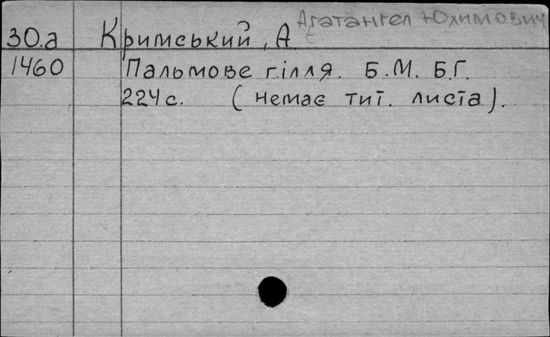 30.а Кримський, А Агатангел Юхимович Є
1460 Пальмове гілля. Б.М. Б.Г.
224с. (немає тит. листа).